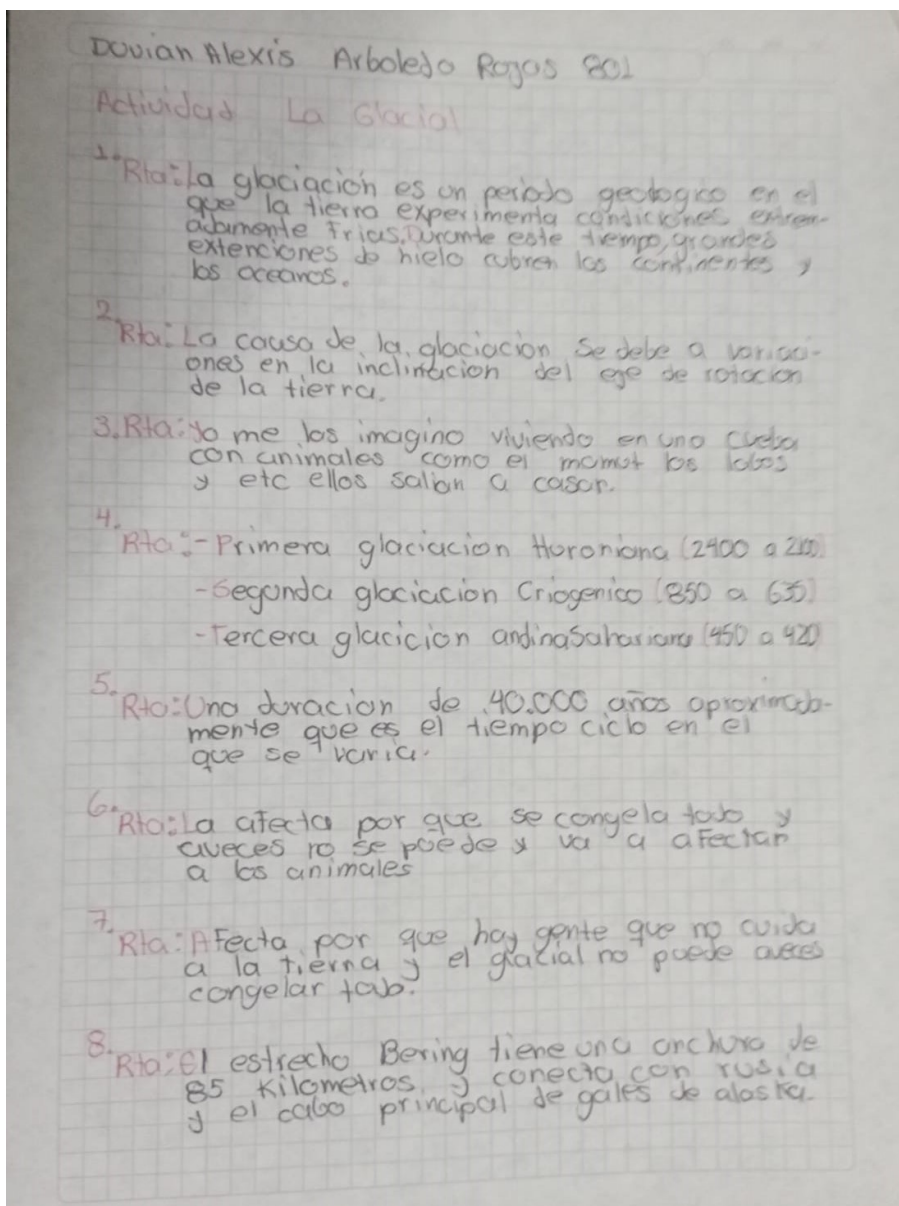 Dovian Alexis Arboledo Rojas 801
Actividad La Glacial
1. Rta: La glaciación es un periodo geologico en el
que la tierra experimenta condiciones extrem-
adamente frias. Durante este tiempo, grandes
extenciones de hielo cubren los continentes y
los oceanos.
2. Rta: La causa de la glaciacion se debe a variaci-
ones en la inclinacion del eje de rotacion
de la tierra.
3. Rta: yo me los imagino viviendo en una cueba
con animales como el mamut los lobos
y etc ellos salian a casar.
4. Rta: - Primera glaciacion Huroniana (2400 a 2100)
- Segunda glaciacion Criogenico (850 a 635)
- Tercera glacicion andinaSahariana (450 a 420
5. Rta: Una duracion de 40.000 años aproximada-
mente que es el tiempo ciclo en el
que se varia.
6. Rta: La afecta por que se congela todo y
aveces no se puede y va a afectar
a los animales
7. Rta: Afecta por que hay gente que no cuida
a la tierra y el glacial no puede aveces
congelar todo.
8. Rta: El estrecho Bering tiene una anchura de
85 Kilometros y conecta con rusia
y el cabo principal de gales de alaska.